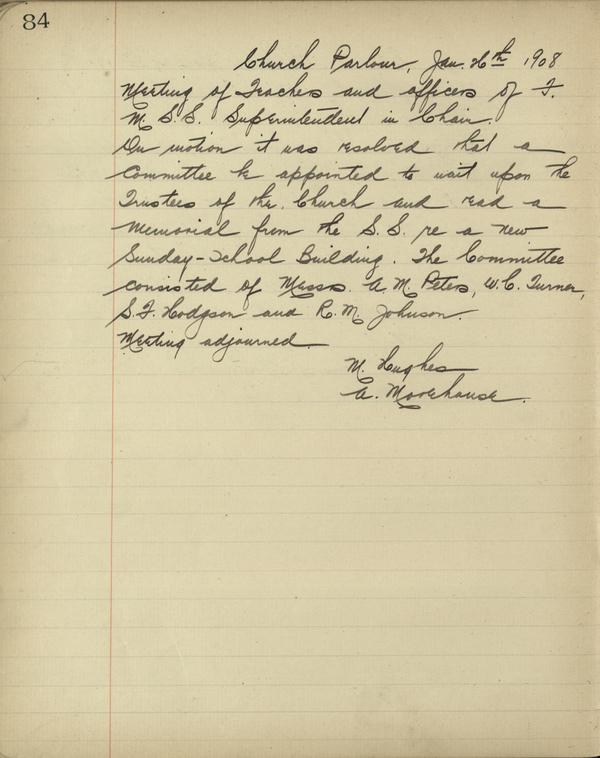 84
Church Parlour, Jan. 26th 1908
Meeting of Teachers and officers of F.
M. S.S. Superintendent in Chair.
On motion it was resolved that a
Committee be appointed to wait upon the
Trustees of the Church and read a
Memorial from the S.S. re a new
Sunday-School Building. The Committee
consisted of Messrs. A. M. Peters, W. C. Turner,
S. F. Hodgson and R. M. Johnson.
Meeting adjourned.
M. Hughes
A. Moorehouse.